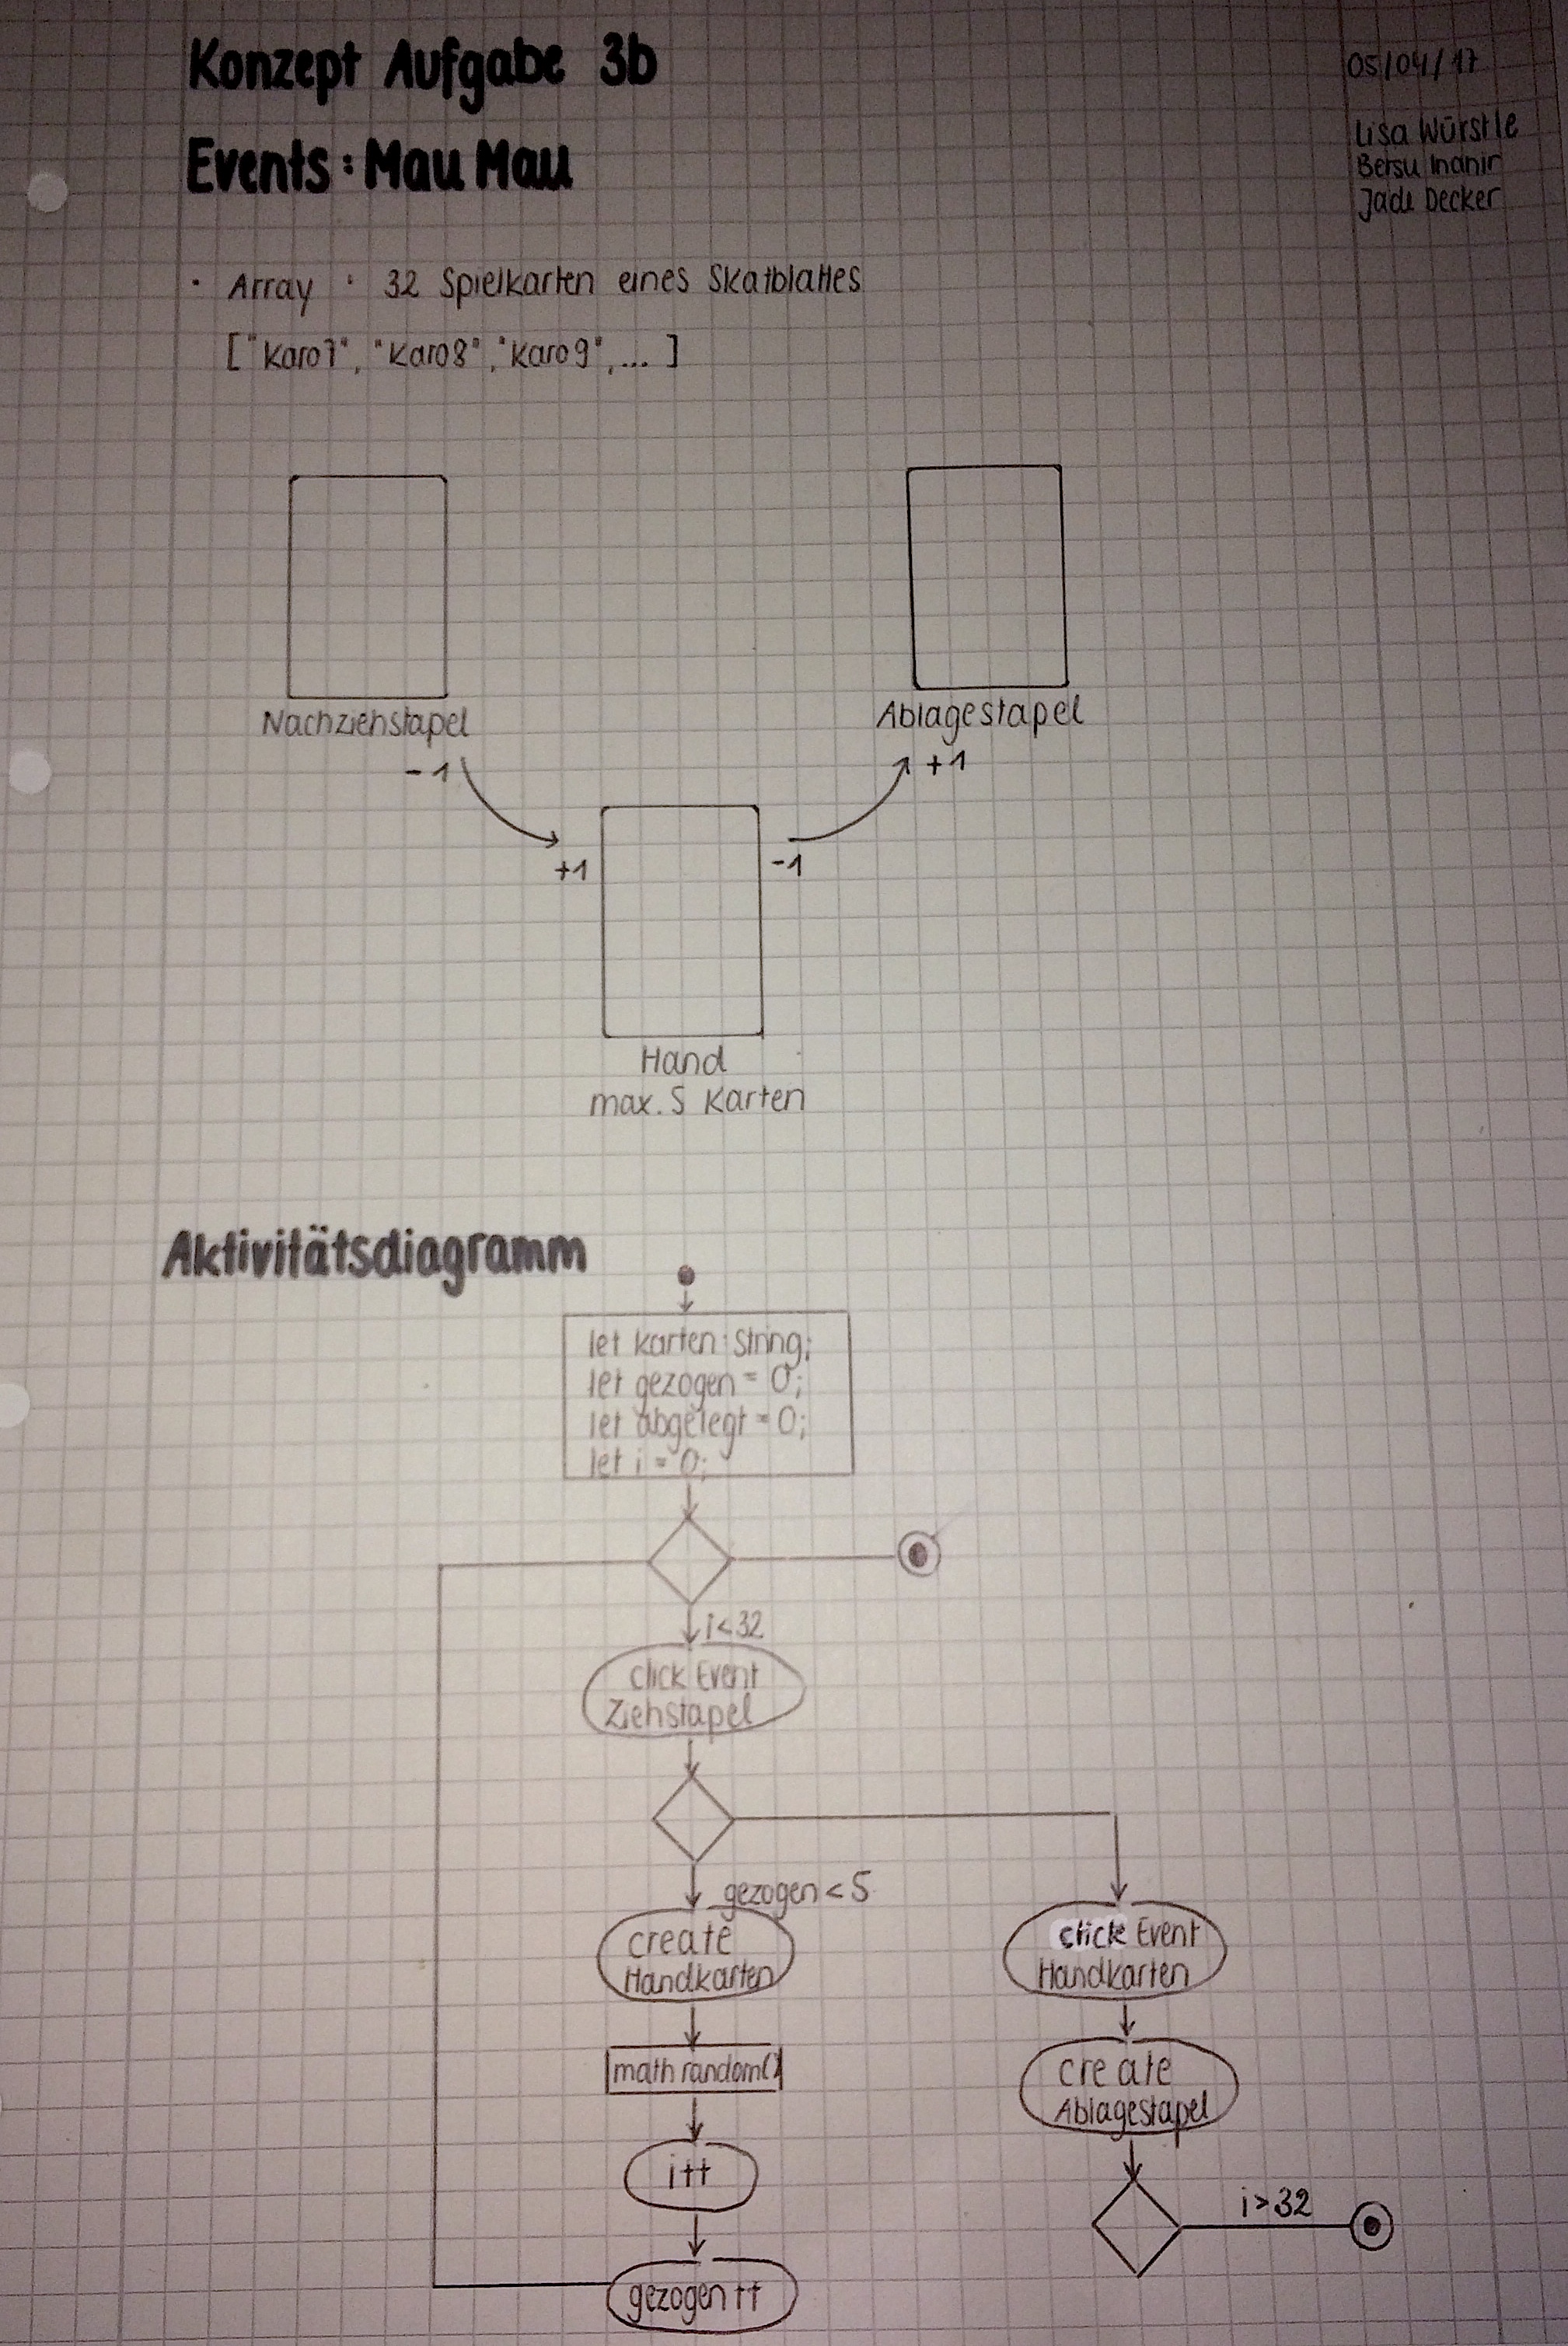 Konzept Aufgabe 3b
05/04/17
Events: Mau Mau
Lisa Würstle
Bersu Inanir
Jade Decker
· Array : 32 Spielkarten eines Skatblattes
["Karo7", "Karo8", "Karo9", ... ]
Nachziehstapel
Ablagestapel
-1
+1
+1
-1
Hand
max. 5 Karten
Aktivitätsdiagramm
let karten: String;
let gezogen = 0;
let abgelegt = 0;
let i = 0;
i<32
click Event
Ziehstapel
gezogen < 5
create
Handkarten
click Event
Handkarten
math random()
create
Ablagestapel
i++
i>32
gezogen ++